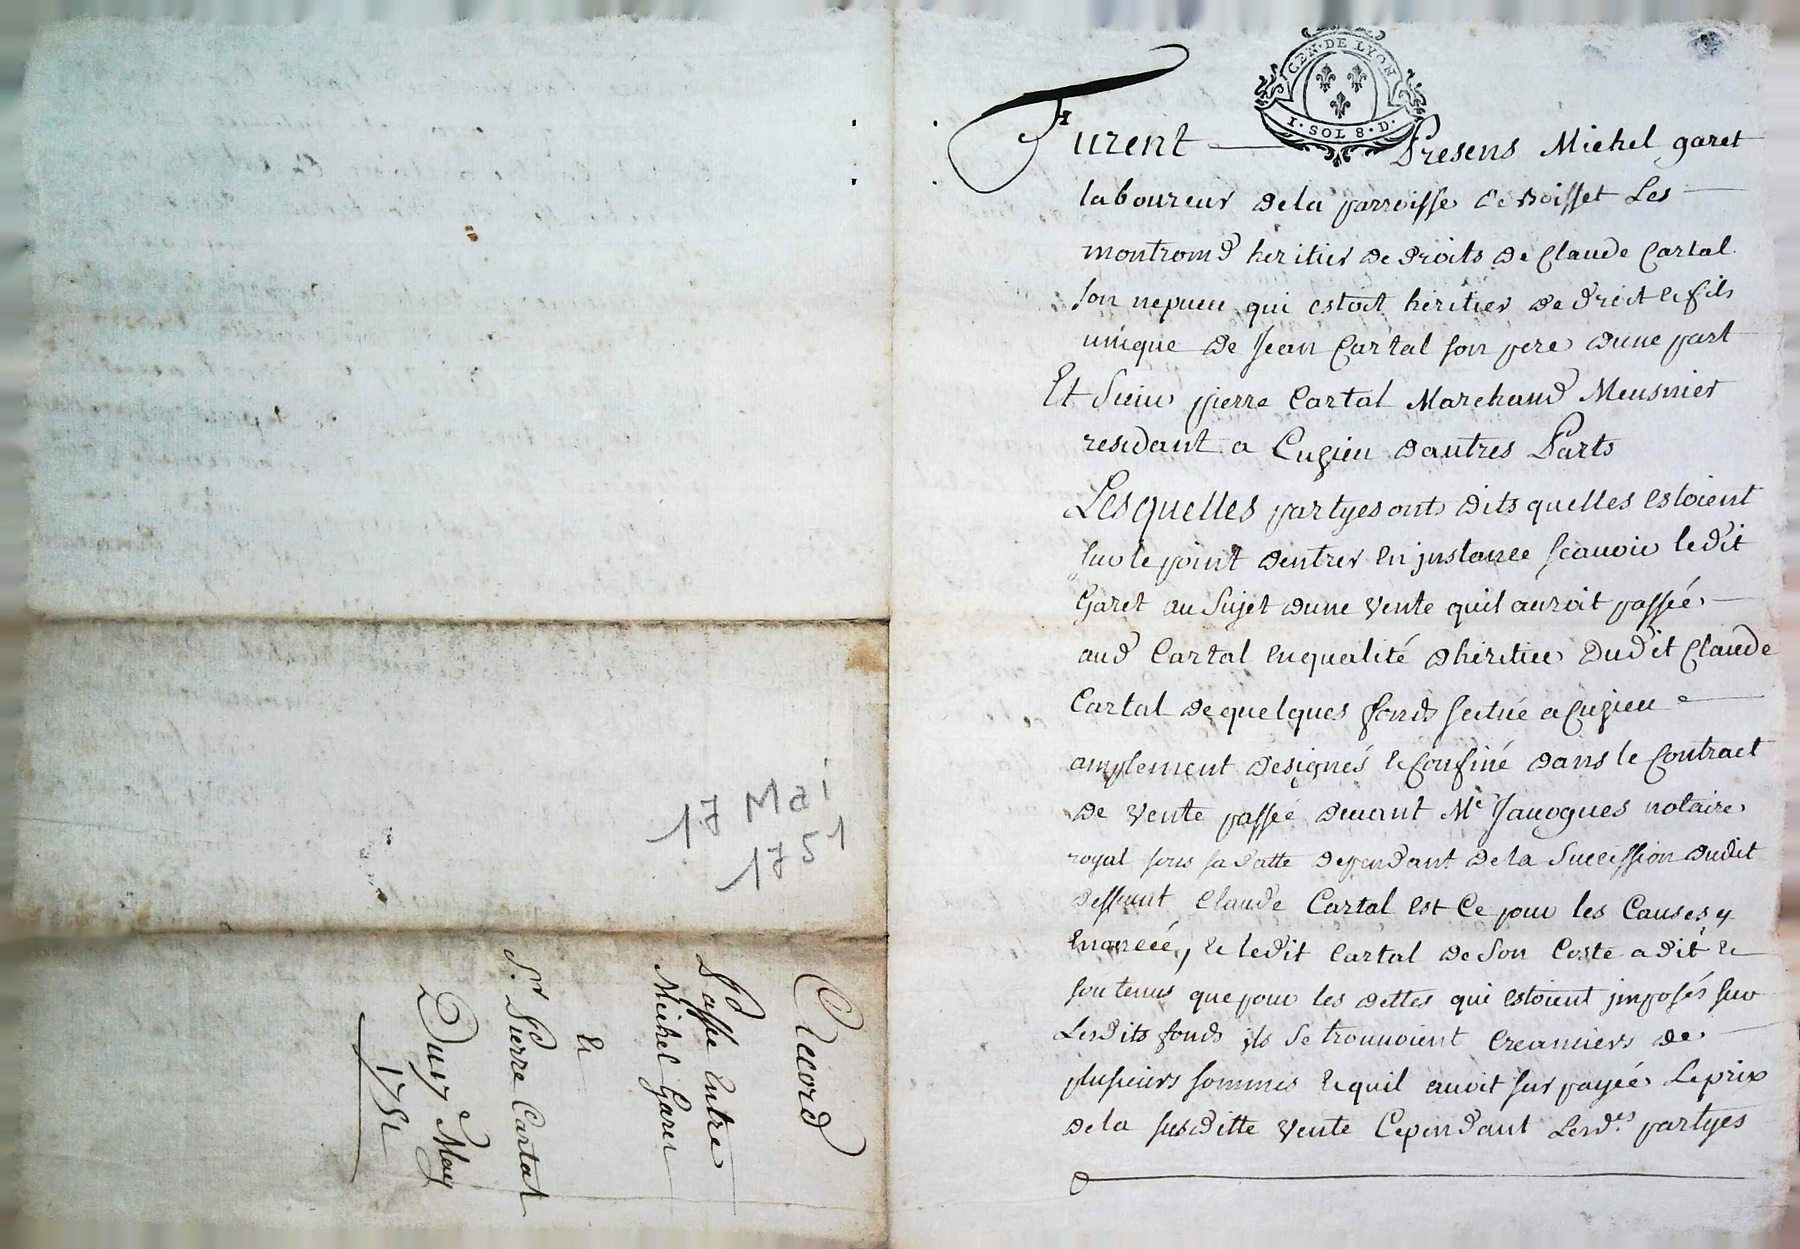 17 Mai
1751
Accord
Passé Entre
Michel Garet
&
Sr. Pierre Cartal
Du 17 May
1751
GEN · DE LYON
I · SOL 8 · D ·
Furent Presens Michel garet
laboureur de la parroisse de Boisset Les
montrond heritier de droits de Claude Cartal
son nepueu qui estoit heritier de droit & fils
unique de Jean Cartal son pere dune part
Et Sieur pierre Cartal Marchand Meusnier
residant a Cuzieu dautres Parts
Lesquelles partyes ont dits quelles estoient
sur le point dentrer en jnstance scauoir ledit
Garet au sujet dune vente quil auroit passée
aud Cartal en qualité dheritier dudit Claude
Cartal de quelques fonds scitué a Cuzieu
amplement designés & Confiné dans le Contract
de vente passée deuant Me Jauogues notaire
royal sous sa datte dependant de la Succession dudit
deffunt Claude Cartal est Ce pour les Causes y
enoncée, & ledit Cartal de son Costé a dit &
soutenus que pour les dettes qui estoient jmposés sur
Lesdits fonds ils se trouuoient Creanciers de
plusieurs sommes & quil auoit sur payée Le prix
de la susditte vente Cependant Lesd.es partyes